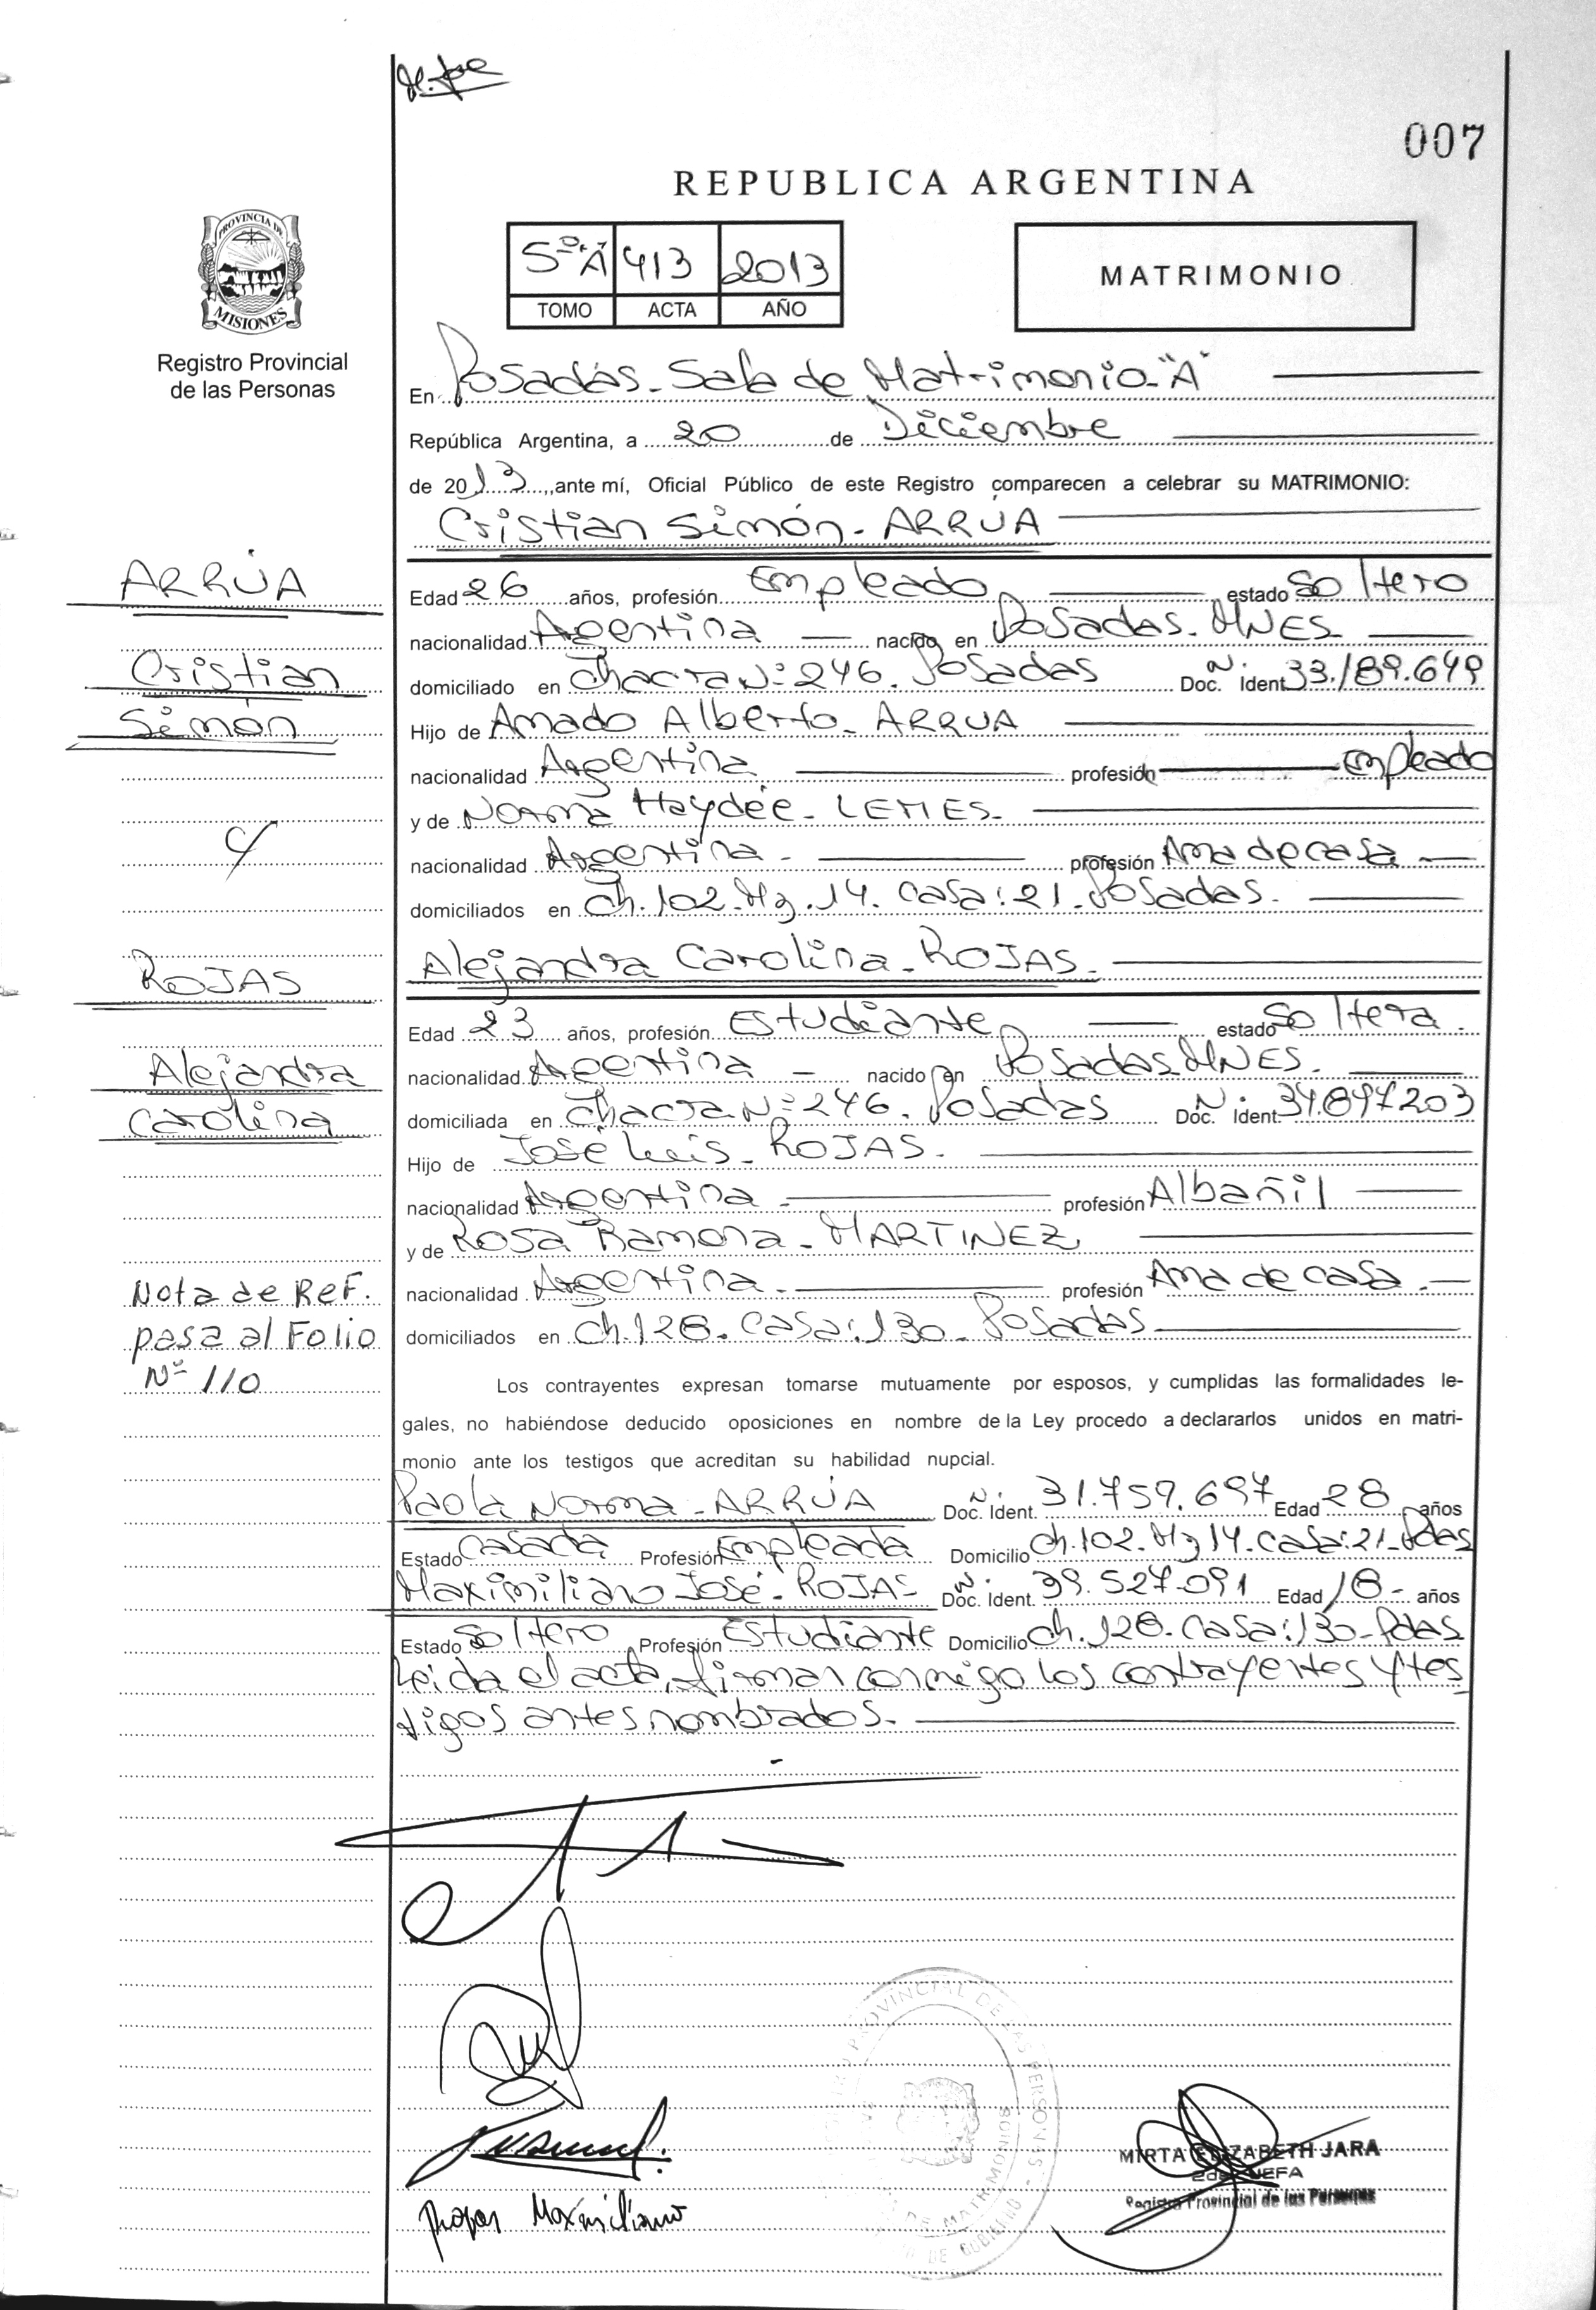 007
REPUBLICA ARGENTINA
5º "A" 413 2013
TOMO ACTA AÑO
MATRIMONIO
PROVINCIA DE
MISIONES
Registro Provincial
de las Personas
En Posadas - Sala de Matrimonio - "A"
República Argentina, a 20 de Diciembre
de 2013, ante mí, Oficial Público de este Registro comparecen a celebrar su MATRIMONIO:
Cristian Simón - ARRÚA
ARRÚA
Cristian
Simón
c/
ROJAS
Alejandra
Carolina
Nota de Ref.
pasa al Folio
Nº 110
Edad 26 años, profesión Empleado estado Soltero
nacionalidad Argentina nacido en Posadas - MNES.
domiciliado en Chacra Nº 246. Posadas Doc. N. Ident 33.189.649
Hijo de Amado Alberto - ARRUA
nacionalidad Argentina profesión Empleado
y de Norma Haydée - LEMES -
nacionalidad Argentina - profesión Ama de casa
domiciliados en Ch. 102 - Mz. 14. Casa: 21 - Posadas.
Alejandra Carolina - ROJAS.
Edad 23 años, profesión Estudiante estado Soltera.
nacionalidad Argentina nacido en Posadas - MNES.
domiciliada en Chacra Nº 246. Posadas Doc. N. Ident. 34.897.203
Hijo de José Luis - ROJAS.
nacionalidad Argentina profesión Albañil
y de Rosa Ramona - MARTINEZ
nacionalidad Argentina. profesión Ama de casa.
domiciliados en Ch. 128 - Casa: 130 - Posadas
Los contrayentes expresan tomarse mutuamente por esposos, y cumplidas las formalidades le-
gales, no habiéndose deducido oposiciones en nombre de la Ley procedo a declararlos unidos en matri-
monio ante los testigos que acreditan su habilidad nupcial.
Paola Norma - ARRÚA Doc. N. Ident. 31.759.697 Edad 28 años
Estado Casada Profesión Empleada Domicilio Ch. 102 - Mz 14. Casa: 21 - Pdas
Maximiliano José - ROJAS Doc. N. Ident. 39.527.091 Edad 18 - años
Estado Soltero Profesión Estudiante Domicilio Ch. 128. Casa: 130 - Pdas
Leida el acta, firman conmigo los contrayentes y tes
tigos antes nombrados.
Rojas Maximiliano
MIRTA ELIZABETH JARA
2da JEFA
Registro Provincial de las Personas